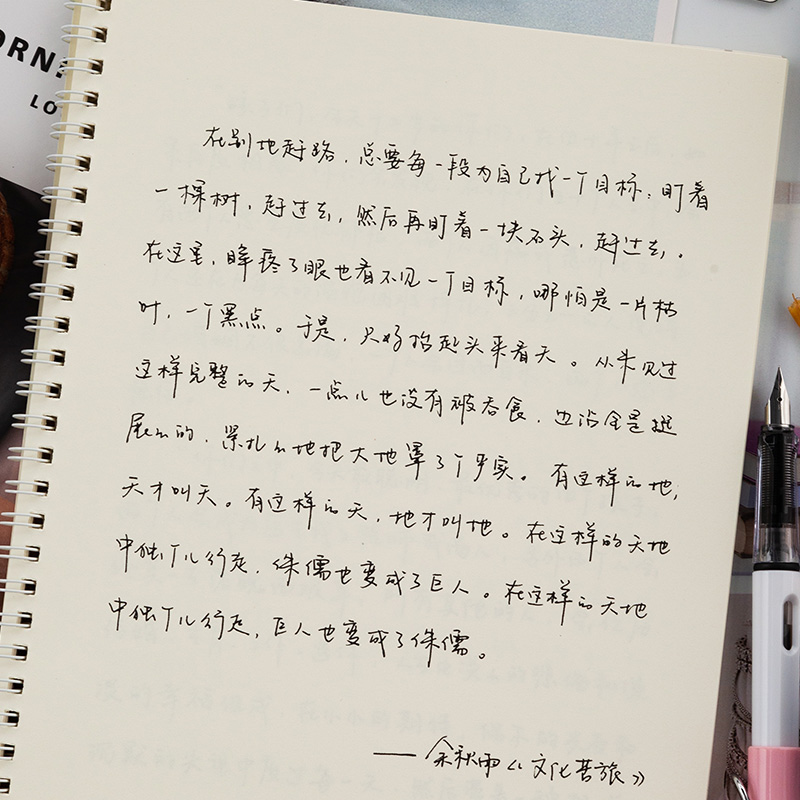 ORN
LO
在别地赶路，总要每一段为自己找一个目标：盯着
一棵树，赶过去，然后再盯着一块石头，赶过去。
在这里，睁疼了眼也看不见一个目标，哪怕是一片枯
叶，一个黑点。于是，只好抬起头来看天。从未见过
这样完整的天，一点儿也没有被吞食，边沿全是挺
展展的，紧扎扎地把大地罩了个严实。有这样的地，
天才叫天。有这样的天，地才叫地。在这样的天地
中独个儿行走，侏儒也变成了巨人。在这样的天地
中独个儿行走，巨人也变成了侏儒。
——余秋雨《文化苦旅》